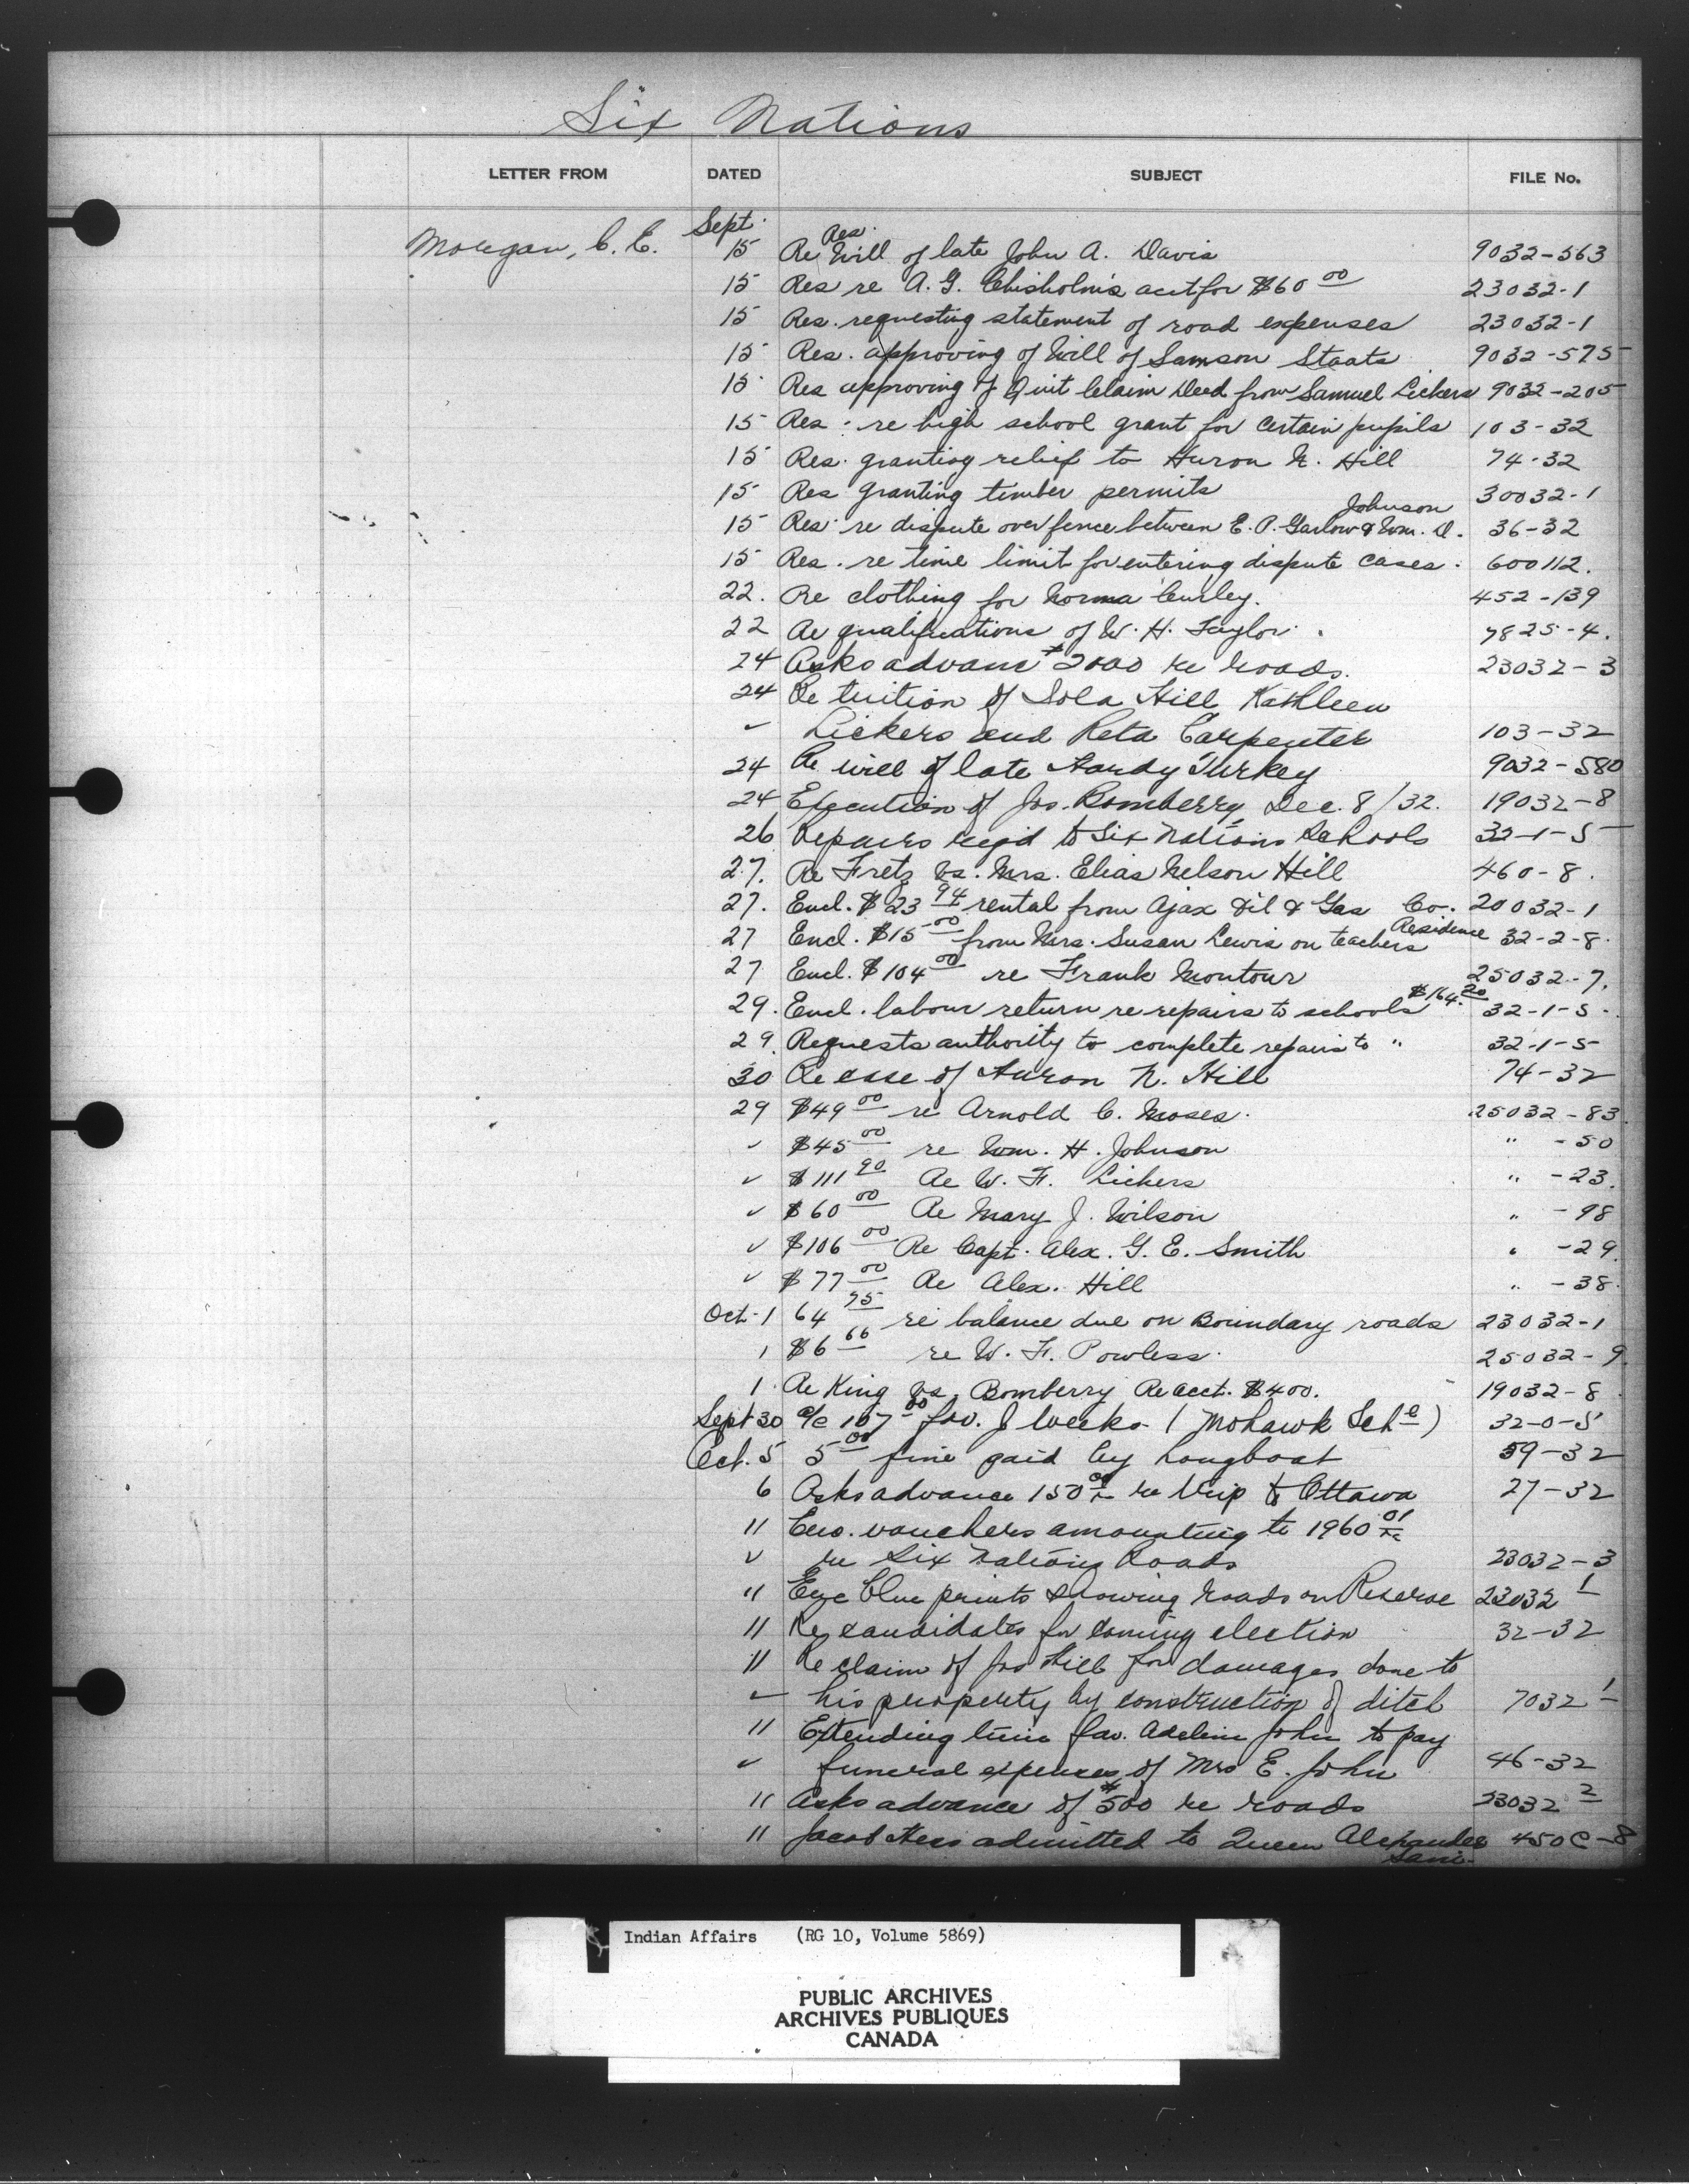 Six Nations
LETTER FROM DATED SUBJECT FILE No.
Morgan, C. E. Sept. 15 Re Res. Will of late John A. Davis 9032-563
15 Res re A. G. Chisholm's acct for $60 00 23032-1
15 Res. requesting statement of road expenses 23032-1
15 Res. approving of Will of Samson Staats 9032-575
15 Res approving of Quit Claim Deed from Samuel Lickers 9032-205
15 Res. re high school grant for certain pupils 103-32
15 Res. granting relief to Huron N. Hill 74-32
15 Res granting timber permits 30032-1
15 Res. re dispute over fence between E. P. Garlow & Wm. D. Johnson 36-32
15 Res. re time limit for entering dispute cases. 600112.
22. Re clothing for Norma Curley. 452-139
22 Re qualifications of W. H. Taylor. 7825-4.
24 Asks advance $2000 re roads. 23032-3
24 Re tuition of Lola Hill Kathleen
✓ Lickers and Reta Carpenter 103-32
24 Re will of late Hardy Turkey 9032-580
24 Execution of Jos. Bomberry Dec. 8/32. 19032-8
26 Repairs req'd to Six Nations Schools 32-1-5
27. Re Fretz vs. Mrs. Elias Nelson Hill 460-8.
27. Encl. $23 94 rental from Ajax Oil & Gas Co. 20032-1
27 Encl. $15 00 from Mrs. Susan Lewis on teachers Residence 32-2-8.
27 Encl. $104 00 re Frank Montour 25032-7.
29. Encl. labour return re repairs to schools $164. 20 32-1-5.
29. Requests authority to complete repairs to " 32-1-5
30 Re case of Huron N. Hill 74-32
29 $49 00 re Arnold C. Moses. 25032-83
✓ $45 00 re Wm. H. Johnson " -50
✓ $111 90 Re W. F. Lickers " -23.
✓ $60 00 Re Mary J. Wilson " -98
✓ $106 00 Re Capt. Alex. G. E. Smith " -29
✓ $77 00 Re Alex. Hill " -38.
Oct-1 64 75 re balance due on Boundary roads 23032-1
1 $6 66 re W. F. Powless. 25032-9
1. Re King vs. Bomberry Re acct. $400. 19032-8
Sept 30 a/c 107 00 fav. J Weeks (Mohawk Schl) 32-0-5
Oct. 5 5 00 fine paid by Longboat 59-32
6 Asks advance 150 00 re trip to Ottawa 27-32
11 Enc. vouchers amounting to 1960 01
✓ re Six Nations Roads 23032-3
11 Enc blue prints showing roads on Reserve 23032 1
11 Re candidates for coming election 32-32
11 Re claim of Jos Hill for damages done to
✓ his property by construction of ditch 7032 1
11 Extending time fav. Adeline John to pay
✓ funeral expenses of Mrs E. John 46-32
11 Asks advance of $500 re roads 23032 2
11 Jacob Hess admitted to Queen Alexandra Sani- 450C-8
Indian Affairs (RG 10, Volume 5869)
PUBLIC ARCHIVES
ARCHIVES PUBLIQUES
CANADA